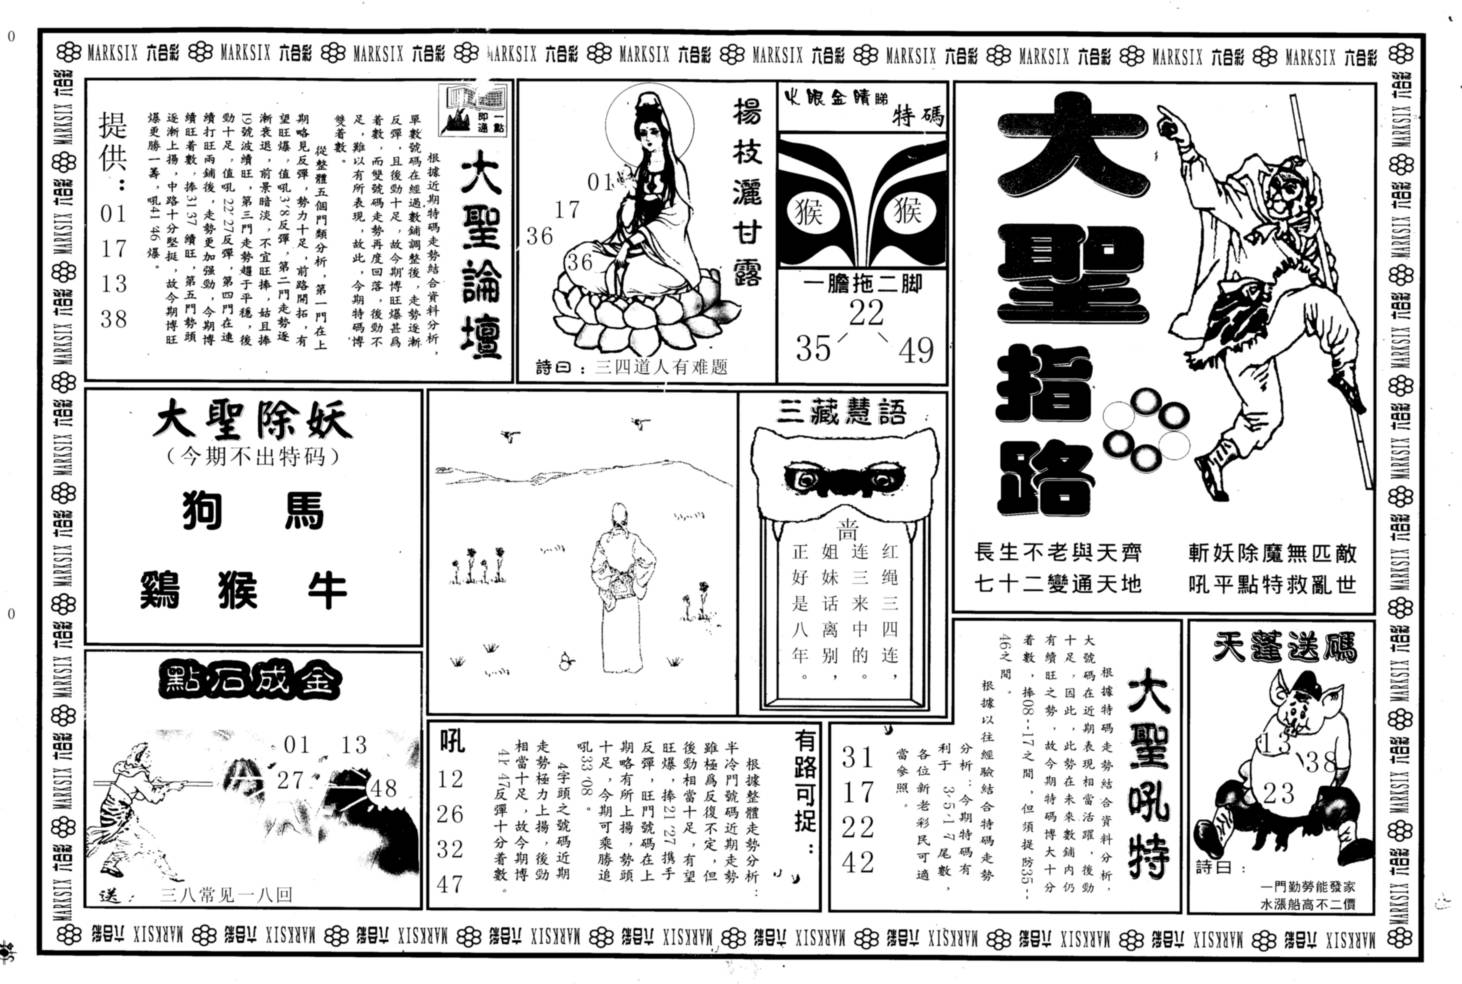 大聖指路
長生不老與天齊
七十二變通天地
斬妖除魔無匹敵
吼平點特救亂世
火眼金睛睇
特碼
猴
猴
一膽拖二脚
22
35
49
揚枝灑甘露
01
17
36
36
詩曰：三四道人有难题
一點
即通
大聖論壇
根據近期特碼走勢結合資料分析，
單數號碼在經過數鋪調整後，走勢逐漸
反彈，且後勁十足，故今期博旺爆甚爲
着數，而雙號碼走勢再度回落，後勁不
足，難以有所表現，故此，今期特碼博
雙着數。
從整體五個門類分析，第一門在上
期略見反彈，勢力十足，前路開拓，有
望旺爆，值吼3'8反彈，第二門走勢逐
漸衰退，前景暗淡，不宜旺捧，姑且捧
19號波續旺，第三門走勢趨于平穩，後
勁十足，值吼22'27反彈，第四門在連
續打旺兩鋪後，走勢更加强勁，今期博
續旺着數，捧31'37續旺，第五門勢頭
逐漸上揚，中路十分堅挺，故今期博旺
爆更勝一籌，吼41'46爆。
提供：
01
17
13
38
大聖除妖
（今期不出特码）
狗 馬
鷄 猴 牛
三藏慧語
啬
红绳三四连，
连三来中的。
姐妹话离别，
正好是八年。
點石成金
01
13
27
48
送：三八常见一八回
有路可捉：
根據整體走勢分析：
半冷門號碼近期走勢
雖極爲反復不定，但
後勁相當十足，有望
旺爆，捧21'27携手
反彈，旺門號碼在上
期略有所上揚，勢頭
十足，今期可乘勝追
吼33'08。
4字頭之號碼近期
走勢極力上揚，後勁
相當十足，故今期博
41'47反彈十分着數。
吼
12
26
32
47
大聖吼特
根據特碼走勢結合資料分析，
大號碼在近期表現相當活躍，後勁
十足，因此，此勢在未來數鋪内仍
有續旺之勢，故今期特碼博大十分
着數，捧08--17之間，但須提防35--
46之間。
根據以往經驗結合特碼走勢
分析：今期特碼有
利于3·5·1·7尾數，
各位新老彩民可適
當參照。
31
17
22
42
天蓬送碼
13
38
23
詩曰：
一門勤勞能發家
水漲船高不二價
MARKSIX 六合彩